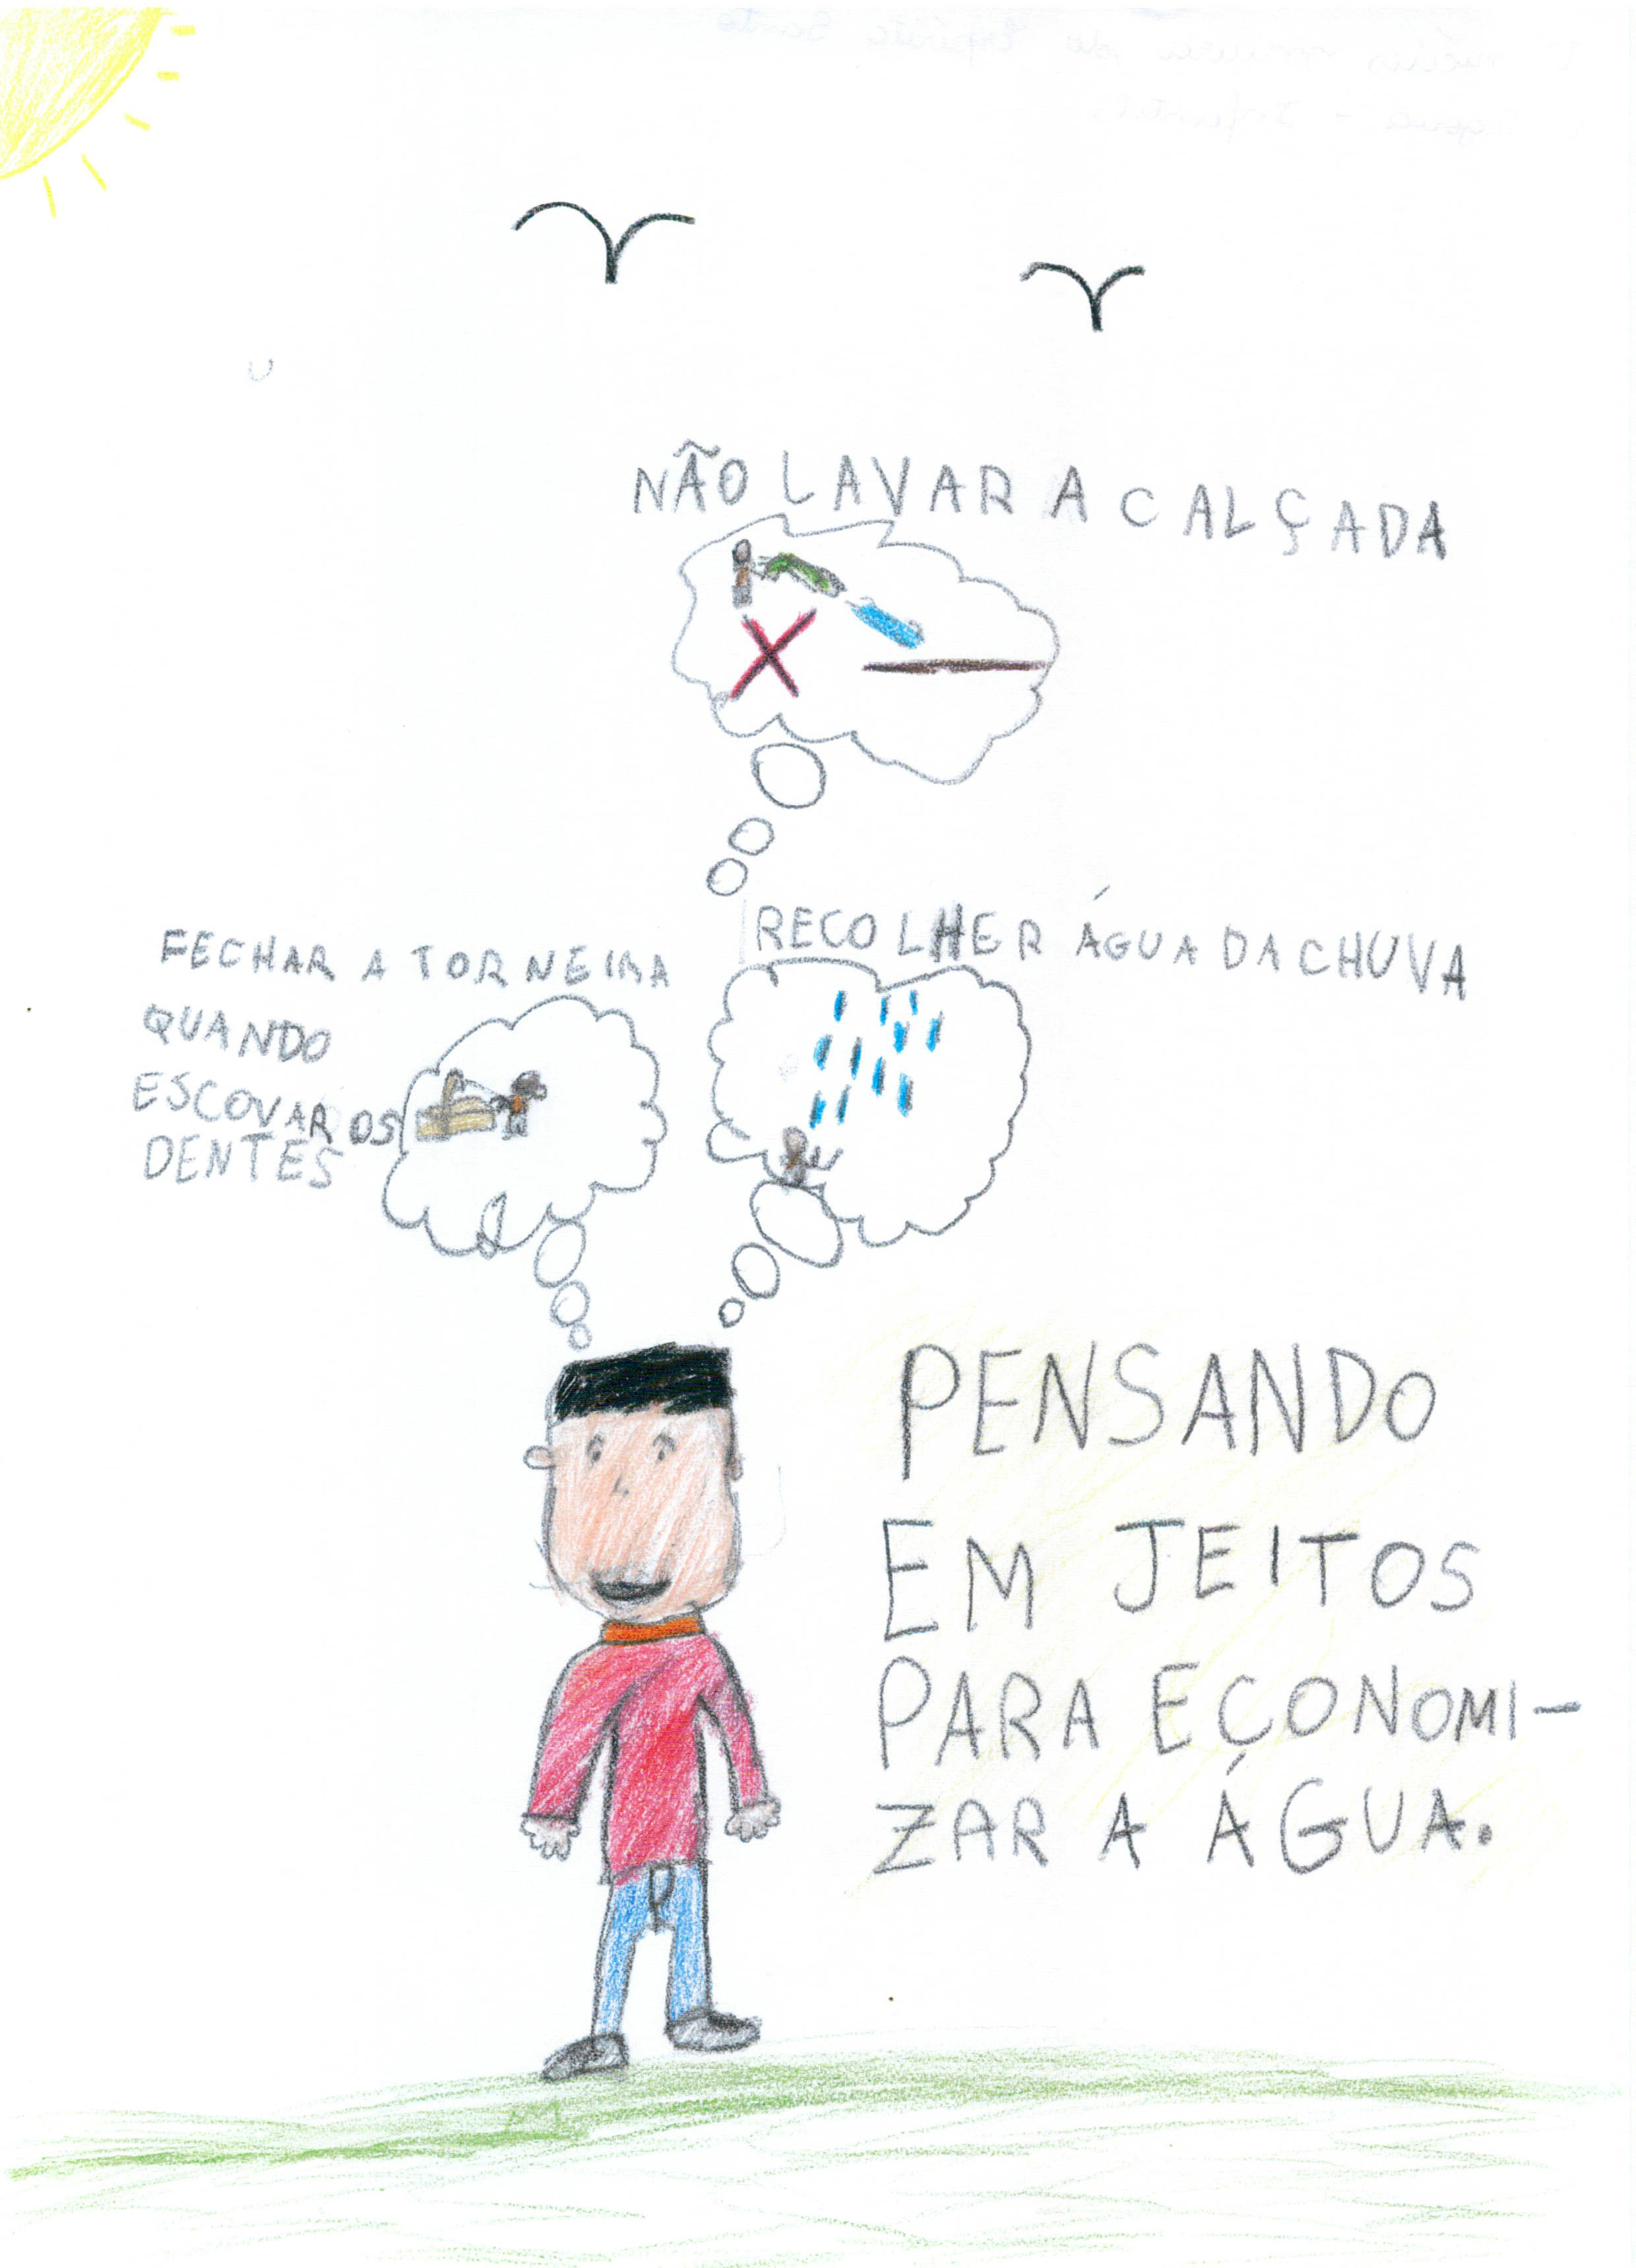 NÃO LAVAR A CALÇADA
RECOLHER ÁGUA DA CHUVA
FECHAR A TORNEIRA
QUANDO
ESCOVAR OS
DENTES
PENSANDO
EM JEITOS
PARA EÇONOMI-
ZAR A ÁGUA.